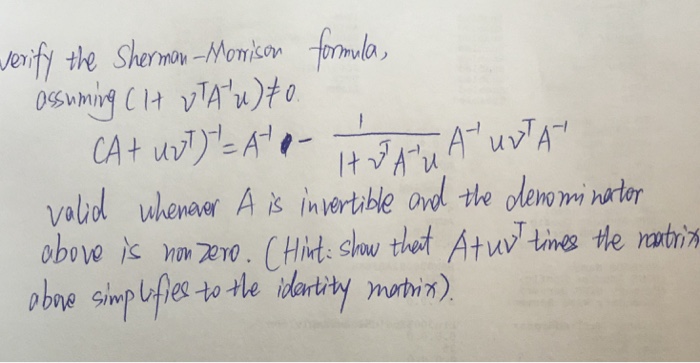 verify the Sherman-Morrison formula,
assuming (1+ vᵀA⁻¹u)≠0.
(A+ uvᵀ)⁻¹= A⁻¹ - 1/(1+vᵀA⁻¹u) A⁻¹ uvᵀA⁻¹
valid whenever A is invertible and the denominator
above is non zero. (Hint: show that A+uvᵀ times the matrix
above simplifies to the identity matrix).